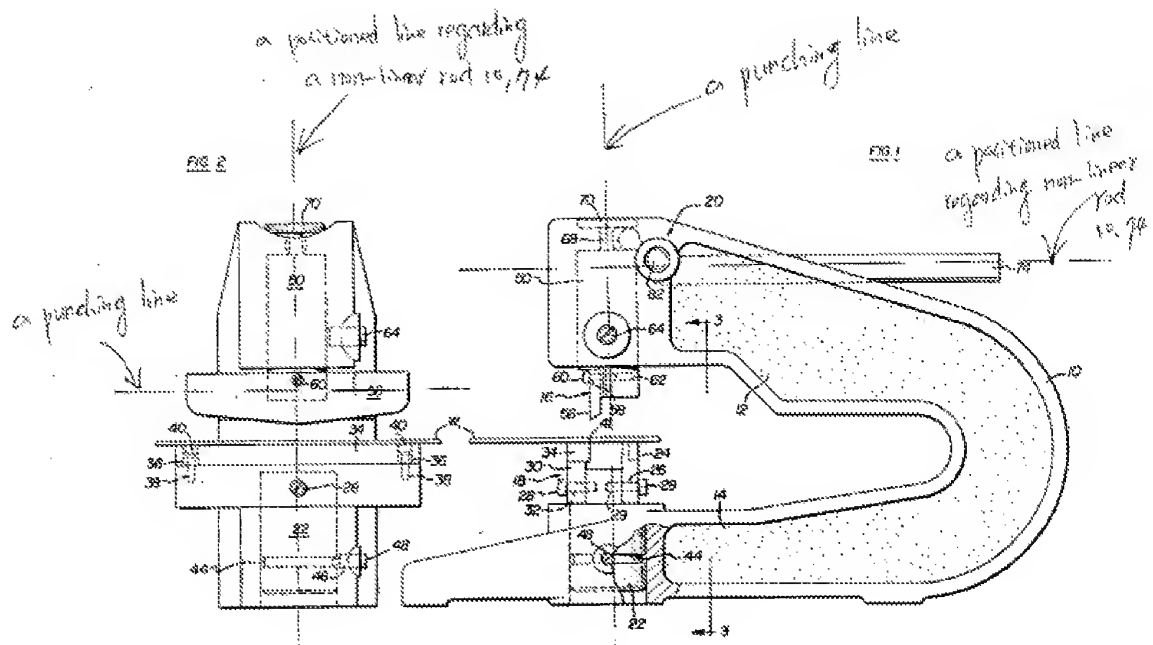 a positioned line regarding
a non-linear rod 10, 74
a punching line
FIG. 2
FIG. 1
a positioned line
regarding non-linear
rod
10, 74
a punching line
70
50
64
60
34
40
40
36
36
38
38
28
22
44
46
48
70
20
68
50
52
64
3
60
62
16
56
58
12
10
34
30
24
26
18
28
29
32
14
48
44
22
3